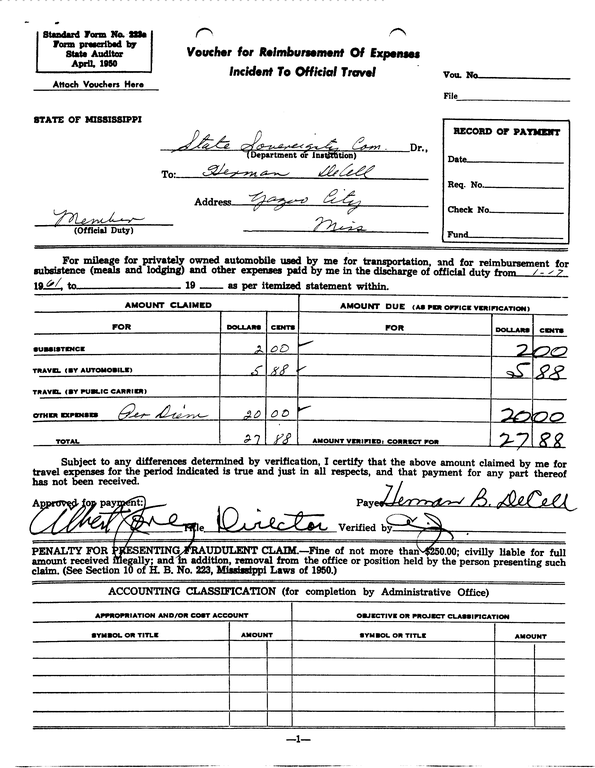 Standard Form No. 223a
Form prescribed by
State Auditor
April, 1950
Attach Vouchers Here
Voucher for Reimbursement Of Expenses
Incident To Official Travel
Vou. No.
File
STATE OF MISSISSIPPI
RECORD OF PAYMENT
Date
Req. No.
Check No.
Fund
State Sovereignty Com. Dr.,
(Department or Institution)
To: Herman DeCell
Address Yazoo City
Miss
Member
(Official Duty)
For mileage for privately owned automobile used by me for transportation, and for reimbursement for
subsistence (meals and lodging) and other expenses paid by me in the discharge of official duty from 1-17
1961, to 19 as per itemized statement within.
AMOUNT CLAIMED AMOUNT DUE (AS PER OFFICE VERIFICATION)
FOR DOLLARS CENTS FOR DOLLARS CENTS
SUBSISTENCE 2 00 2 00
TRAVEL (BY AUTOMOBILE) 5 88 5 88
TRAVEL (BY PUBLIC CARRIER)
OTHER EXPENSES Per Diem 20 00 20 00
TOTAL 27 88 AMOUNT VERIFIED: CORRECT FOR 27 88
Subject to any differences determined by verification, I certify that the above amount claimed by me for
travel expenses for the period indicated is true and just in all respects, and that payment for any part thereof
has not been received.
Approved for payment: Payee Herman B. DeCell
Albert Jones Title Director Verified by
PENALTY FOR PRESENTING FRAUDULENT CLAIM.—Fine of not more than $250.00; civilly liable for full
amount received illegally; and in addition, removal from the office or position held by the person presenting such
claim. (See Section 10 of H. B. No. 223, Mississippi Laws of 1950.)
ACCOUNTING CLASSIFICATION (for completion by Administrative Office)
APPROPRIATION AND/OR COST ACCOUNT OBJECTIVE OR PROJECT CLASSIFICATION
SYMBOL OR TITLE AMOUNT SYMBOL OR TITLE AMOUNT
—1—